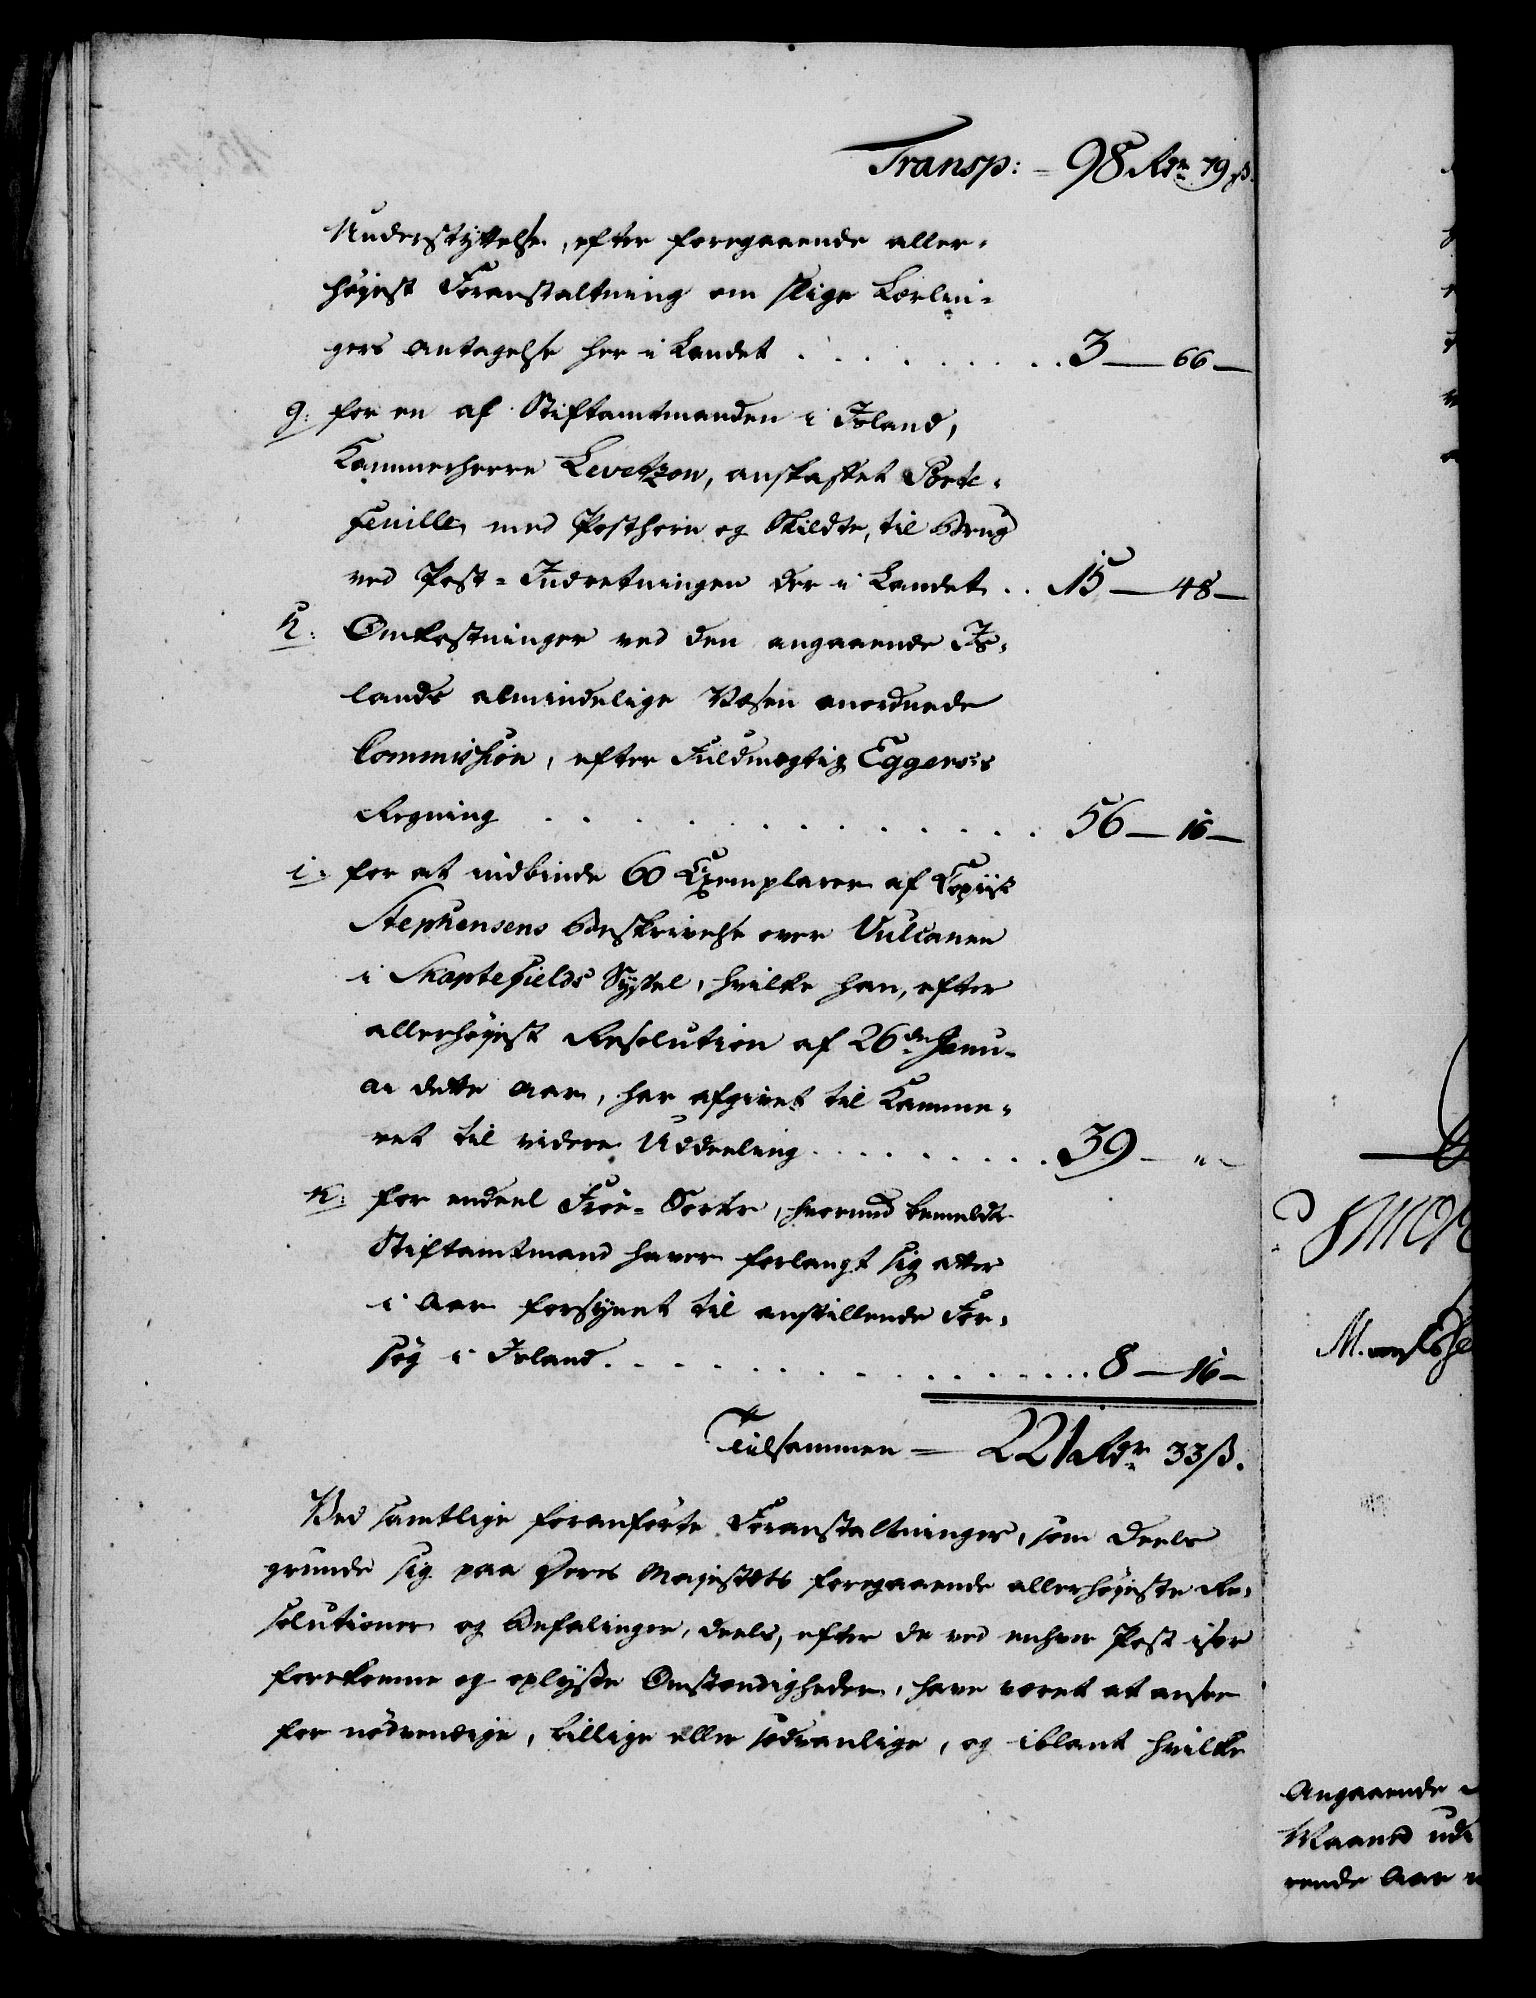 Transp: = 98 Rdr 79 ß.
Understøttelse, efter foregaaende aller-
høyest Foranstaltning om slige Lærlin-
gers antagelse her i Landet . . . . . . . . . 3 — 66 —
g: for en af Stiftamtmanden i Island,
Kammerherre Levetzon, anskaffet Porte-
feuille, med Posthorn og Skildte, til Brug
ved Post-Indretningen der i Landet . . 15 — 48 —
h: Omkostninger ved den angaaende Is-
lands almindelige Væsen anordnede
Commission, efter Fuldmægtig Eggers's
Regning . . . . . . . . . . . . 56 — 16 —
i: for at indbinde 60 Exemplarer af Copiist
Stephensens Beskrivelse over Vulcanen
i Skaptefields Syssel, hvilke han, efter
allerhøyest Resolution af 26de Janu-
ar dette Aar, har afgivet til Kamme-
ret til videre Uddeeling . . . . . . . . . 39 — " —
k: for endeel Frøe-Sorter, hvormed bemeldte
Stiftamtmand haver forlangt sig atter
i Aar forsynet til anstillende For-
søg i Island . . . . . . . . . . . . . 8 — 16 —
Tilsammen = 221 Rdr 33 ß.
Ved samtlige foranførte Foranstaltninger, som deels
grunde sig paa Deres Majestæts foregaaende allerhøyeste Re-
solutioner og Befalinger, deels, efter de ved enhver Post især
forekomne og oplyste Omstændigheder, have været at ansee
for nødvendige, billige eller sædvanlige, og iblant hvilke
Angaaende
Maaned
rende Aar